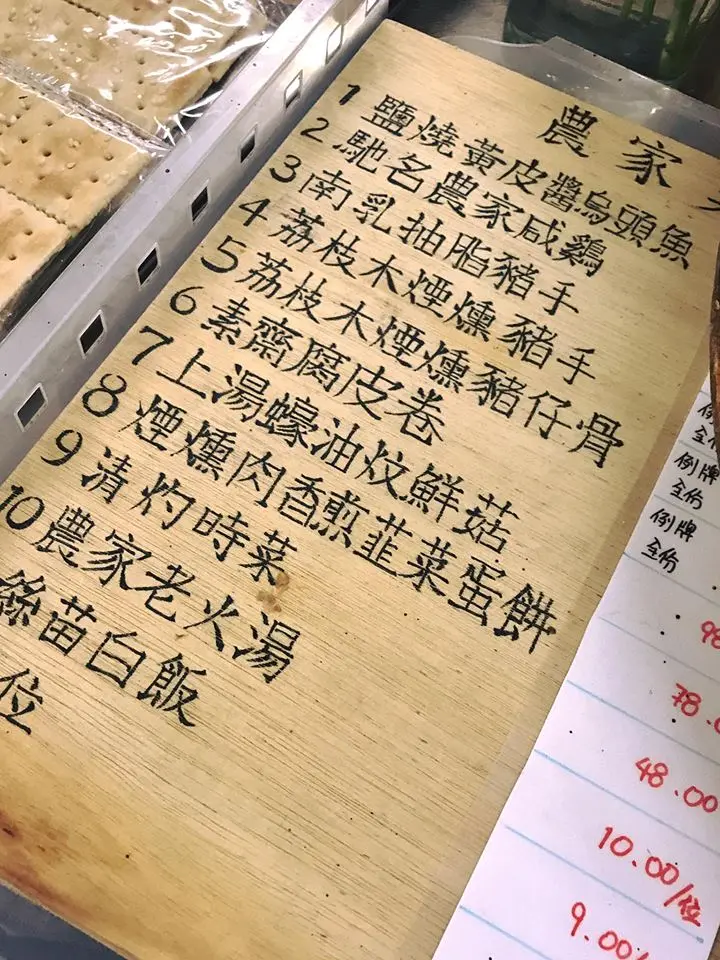 農家
1 鹽燒黃皮醬烏頭魚
2 馳名農家咸鷄
3 南乳抽脂豬手
4 荔枝木煙燻豬手
5 荔枝木煙燻豬仔骨
6 素齋腐皮卷
7 上湯蠔油炆鮮菇
8 煙燻肉香煎韮菜蛋餅
9 清灼時菜
10 農家老火湯
絲苗白飯
位
例牌
全份
例牌
全份
78.
48.00
10.00/位
9.00/